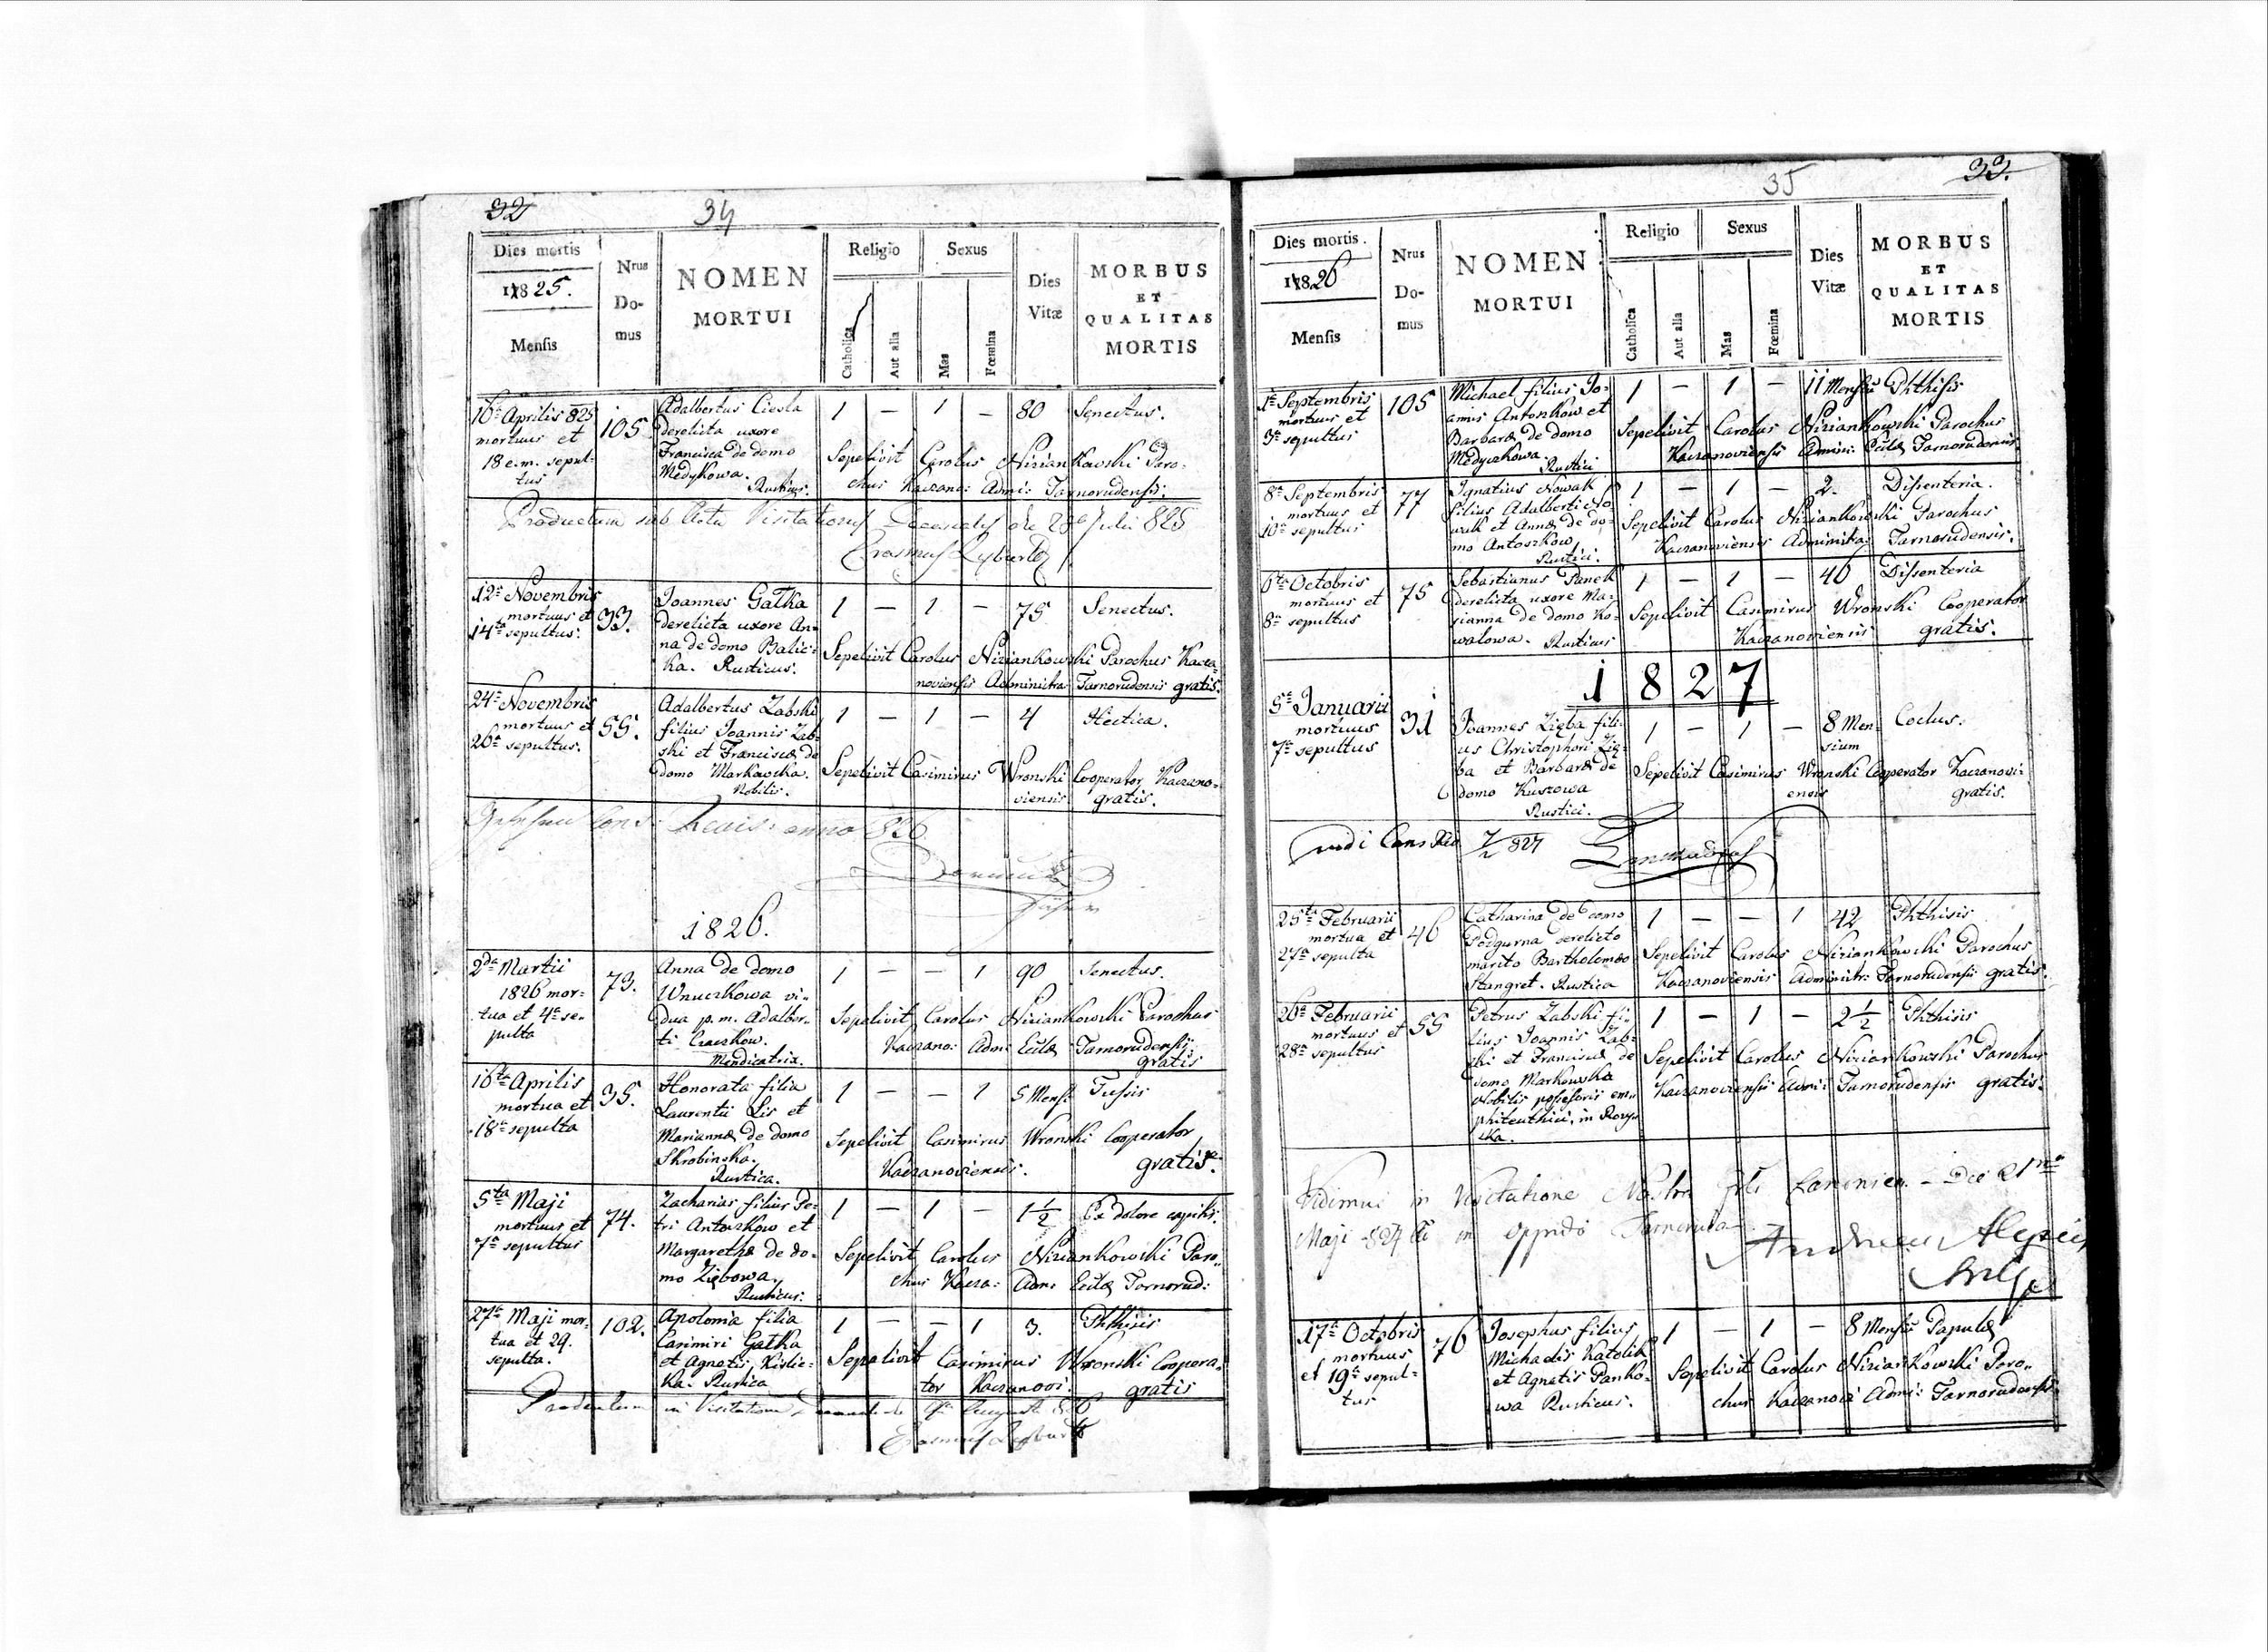 32
34
Dies mortis
1825.
Mensis
Nrus
Do-
mus
NOMEN
MORTUI
Religio
Catholica
Aut alia
Sexus
Mas
Fœmina
Dies
Vitæ
MORBUS
ET
QUALITAS
MORTIS
16a Aprilis 825
mortuus et
18 e.m. sepul-
tus
105
Adalbertus Ciesla
derelicta uxore
Francisca de domo
Medykowa.
Rusticus.
1 — 1 — 80 Senectus.
Sepelivit Carolus Niziankowski Paro-
chus Kaczano: Admi: Tarnorudensis.
Productum sub Actu Visitationis Decanalis die 28 Julii 825
Erasmus
12a Novembris
mortuus et
14ta sepultus.
33.
Joannes Gałka
derelicta uxore An-
na de domo Balic-
ka. Rusticus.
1 — 1 — 75 Senectus.
Sepelivit Carolus Niziankowski Parochus Kacza-
noviensis Administra: Tarnorudensis gratis.
24a Novembris
mortuus et
26a sepultus.
55.
Adalbertus Zabski
filius Joannis Zab-
ski et Franciscæ de
domo Markowska.
Nobilis.
1 — 1 — 4 Hectica.
Sepelivit Casimirus Wronski Cooperator Kaczano-
viensis gratis.
anno 826
1826.
2da Martii
1826 mor-
tua et 4a se-
pulta
73.
Anna de domo
Wnuczkowa vi-
dua p. m. Adalber-
ti Craczkow.
Mendicatrix.
1 — — 1 90 Senectus.
Sepelivit Carolus Niziankowski Parochus
Kaczano: Adm: Ecclæ Tarnorudensis
gratis
16ta Aprilis
mortua et
18a sepulta
35.
Honorata filia
Laurentii Lis et
Mariannæ de domo
Skrobinska.
Rustica.
1 — — 1 5 Mens: Tussis
Sepelivit Casimirus Wronski Cooperator
Kaczanoviensis. gratis.
5ta Maji
mortuus et
7a sepultus
74.
Zacharias filius Pe-
tri Antoszkow et
Margarethæ de do-
mo Ziębowa.
Rusticus.
1 — 1 — 1 1/2 Ex dolore capitis.
Sepelivit Carolus Niziankowski Paro-
chus Kacza: Adm: Ecclæ Tarnorud:
27a Maji mor-
tua et 29.
sepulta.
102.
Apolonia filia
Casimiri Gałka
et Agnetis Kislic-
ka. Rustica
1 — — 1 3. Phthisis
Sepelivit Casimirus Wronski Coopera-
tor Kaczanovi: gratis
Productum in Visitatione Augusti 826
Erasmus
35
33.
Dies mortis.
1826
Mensis
Nrus
Do-
mus
NOMEN
MORTUI
Religio
Catholica
Aut alia
Sexus
Mas
Fœmina
Dies
Vitæ
MORBUS
ET
QUALITAS
MORTIS
1a Septembris
mortuus et
3a sepultus
105
Michael filius Jo-
annis Antoszkow et
Barbaræ de domo
Medyczkowa.
Rustici
1 — 1 — 11 Mensiū Phthisis
Sepelivit Carolus Niziankowski Parochus
Kaczanoviensis Admin: Ecclæ Tarnorudensis
8a Septembris
mortuus et
10a sepultus
77
Ignatius Nowak
filius Adalberti No-
wak et Annæ de do-
mo Antoszkow
Rustici.
1 — 1 — 2. Dissenteria.
Sepelivit Carolus Niziankowski Parochus
Kaczanoviensis Administra: Tarnorudensis.
6ta Octobris
mortuus et
8a sepultus
75
Sebastianus Panek
derelicta uxore Ma-
rianna de domo Ko-
walowa. Rusticus
1 — 1 — 46 Dissenteria
Sepelivit Casimirus Wronski Cooperator
Kaczanoviensis gratis.
1827
5a Januarii
mortuus
7a sepultus
31
Joannes Zięba fili-
us Christophori Zię-
ba et Barbaræ de
domo Kuszowa
Rustici.
1 — 1 — 8 Men-
sium
Coclus.
Sepelivit Casimirus Wronski Cooperator Kaczanovi-
ensis gratis.
vidi 7/2 827
25ta Februarii
mortua et
27a sepulta
46
Catharina de domo
Podgurna derelicto
marito Bartholomeo
Stangret. Rustica
1 — — 1 42 Phthisis
Sepelivit Carolus Niziankowski Parochus
Kaczanoviensis Administr: Tarnorudensis gratis.
26a Februarii
mortuus et
28a sepultus
55
Petrus Zabski fi-
lius Joannis Zab-
ski et Franciscæ de
domo Markowska
Nobilis possessoris em-
phiteuthici, in
1 — 1 — 2 1/2 Phthisis
Sepelivit Carolus Niziankowski Parochus
Kaczanoviensis Admi: Tarnorudensis gratis.
Vidimus in Visitatione Nostra Canonica Die 21ma
Maji 827 in oppido Tarnoruda
Andreas
17a Octobris
mortuus
et 19a sepul-
tus
76
Josephus filius
Michaelis Katolik
et Agnetis Panko-
wa Rusticus.
1 — 1 — 8 Mensiū Papulæ
Sepelivit Carolus Niziankowski Paro-
chus Kaczanovi Admi: Tarnorudensis